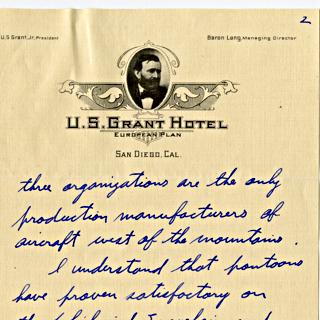 2
U.S. Grant, Jr. President
Baron Long, Managing Director
U.S. GRANT HOTEL
EUROPEAN PLAN
SAN DIEGO, CAL.
three organizations are the only
production manufacturers of
aircraft west of the mountains.
I understand that pontoons
have proven satisfactory on
the